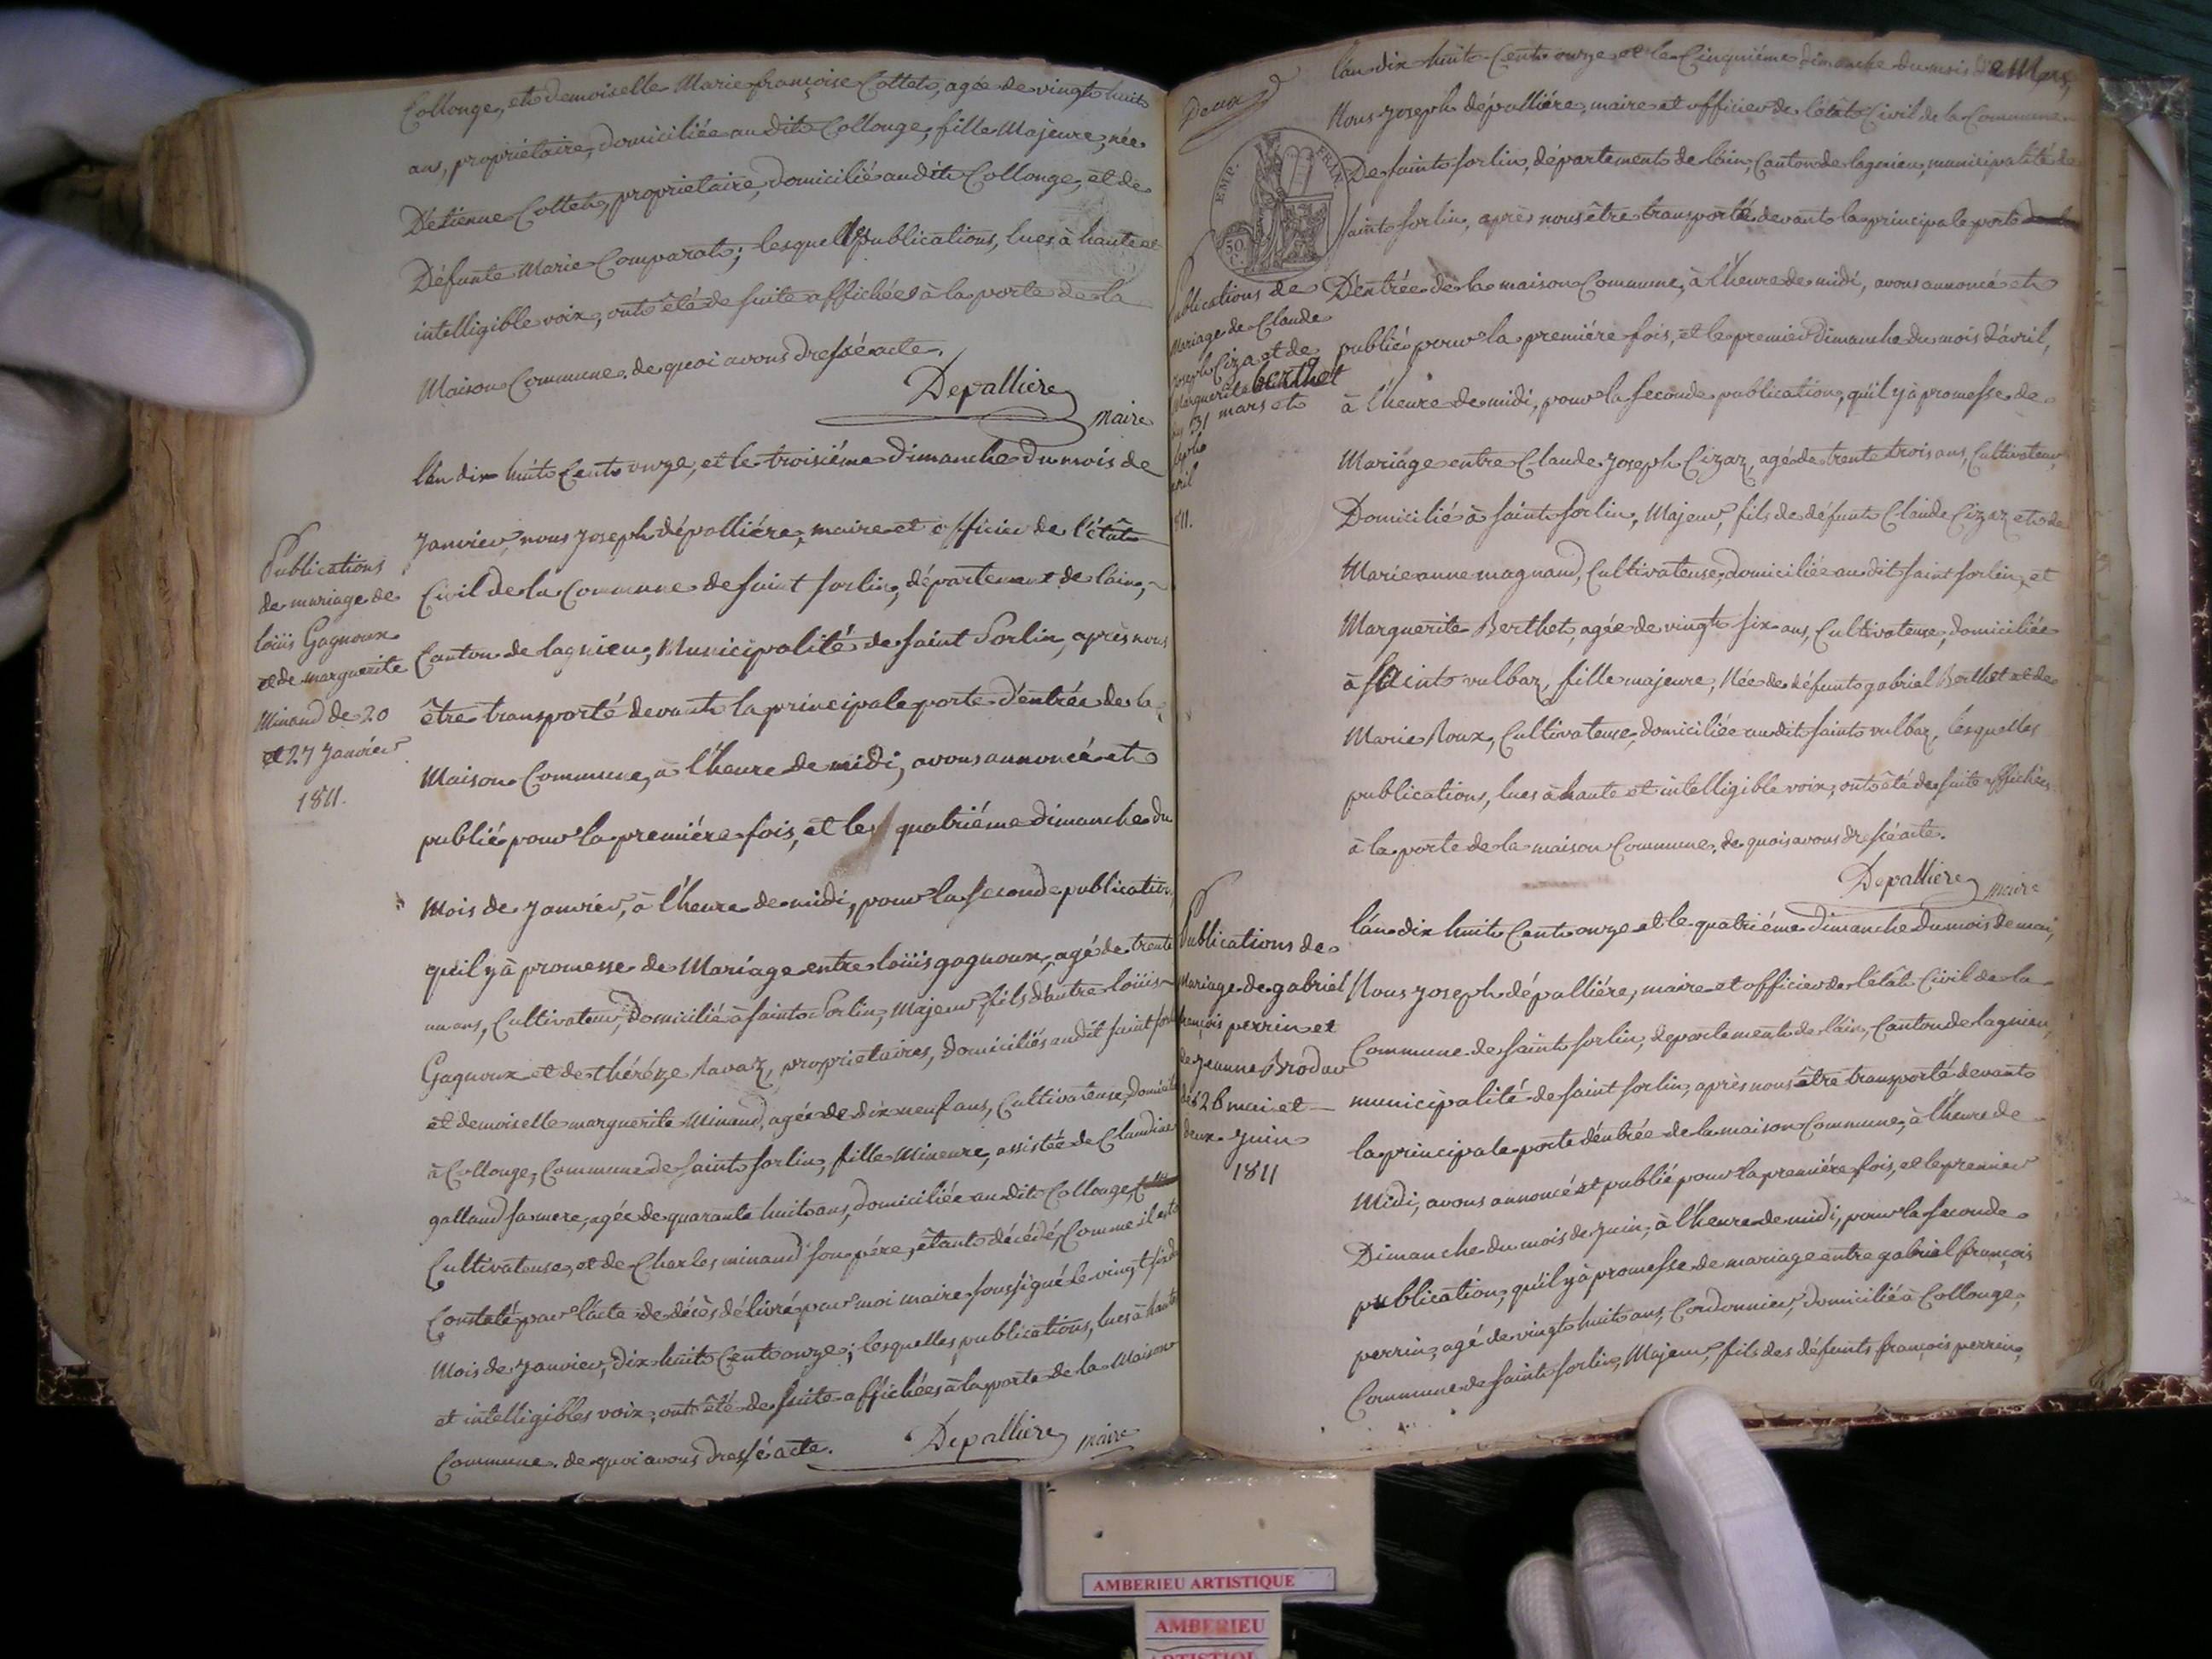 Collonge, et demoiselle Marie françoise Cottet, agée de vingt huit
ans, propriétaire, domiciliée au dit Collonge, fille Majeure, née
D'étienne Cottet, propriétaire, domicilié audit Collonge, et de
Défunte Marie Comparat; lesquelles publications, lues à haute et
intelligible voix, ont été de suite affichées à la porte de la
Maison Commune. de quoi avons dressé acte.
Depalliere
Maire
l'an dix huit Cent onze, et le troisiéme Dimanche Du mois de
Janvier, nous Joseph dépalliére, maire et officier de l'état
Civil de la Commune de saint sorlin, département de l'ain,
Canton de lagnieu, Municipalité de saint Sorlin, après nous
être transporté devant la principale porte d'entrée de la
Maison Commune, à l'heure de midi, avons annoncé et
publié pour la premiére fois, et le quatriéme dimanche du
Mois de Janvier, à l'heure de midi, pour la seconde publication,
qu'il y à promesse de Mariage entre loüis gagnoux, agé de trente
un ans, Cultivateur, Domicilié à saint Sorlin, Majeur, fils d'autre loüis
Gagnoux et de thérése Ravaz, propriétaires, domiciliés audit saint sorlin
et demoiselle marguerite Minaud, agée de dix neuf ans, Cultivateuse, domiciliée
à Collonge, Commune de saint sorlin, fille Mineure, assistée de Claudine
galland sa mere, agée de quarante huit ans, domiciliée audit Collonge,
Cultivateuse, et de Charles minaud son pére, étant décédé, Comme il est
Constaté par l'acte de décès délivré par moi maire soussigné le vingt six du
Mois de Janvier, dix huit Cent onze; lesquelles publications, lues à haute
et intelligibles voix, ont été de suite affichées à la porte de la Maison
Commune. de quoi avons dressé acte.
Depalliere maire
Publications
de mariage de
loüis Gagnoux
et de marguerite
Minaud de 20
et 27 Janvier
1811.
Deux
EMP. FRAN.
50 C.
l'an dix huit Cent onze et le Cinquiéme dimanche du mois de Mars,
Nous Joseph dépalliére, maire et officier de l'état Civil de la Commune
De saint sorlin, département de l'ain, Canton de lagnieu, municipalité de
saint sorlin, après nous être transporté devant la principale porte
D'entrée de la maison Commune, à l'heure de midi, avons annoncé et
publié pour la premiére fois, et le premier dimanche du mois d'avril,
à l'heure de midi, pour la seconde publication, qu'il y à promesse de
Mariage entre Claude Joseph Cizaz, agé de trente trois ans, Cultivateur,
Domicilié à saint sorlin, Majeur, fils de défunt Claude Cizaz et de
Marie anne magnaud, Cultivateuse, domiciliée au dit saint sorlin, et
Marguerite Berthet, agée de vingt six ans, Cultivateuse, domiciliée
à saint vulbaz, fille majeure, Née de défunt gabriel Berthet et de
Marie Roux, Cultivateuse, domiciliée audit saint vulbaz, lesquelles
publications, lues à haute et intelligible voix, ont été de suite affichées
à la porte de la maison Commune. de quoi avons dressé acte.
Depalliere maire
Publications de
Mariage de Claude
Joseph Ciza et de
Marguerite berthet
31 mars et
avril
1811.
l'an dix huit Cent onze et le quatriéme Dimanche du mois de mai,
Nous Joseph dépalliére, maire et officier de l'état Civil de la
Commune de saint sorlin, département de l'ain, Canton de lagnieu,
municipalité de saint sorlin, après nous être transporté devant
la principale porte d'entrée de la maison Commune, à l'heure de
Midi, avons annoncé et publié pour la premiére fois, et le premier
Dimanche du mois de Juin, à l'heure de midi, pour la seconde
publication, qu'il y à promesse de mariage entre gabriel françois
perrin, agé de vingt huit ans, Cordonnier, domicilié à Collonge,
Commune de saint sorlin, Majeur, fils des défunts françois perrin,
Publications de
Mariage de gabriel
françois perrin et
de Jeanne Brodar
des 26 mai et
deux Juin
1811
AMBERIEU ARTISTIQUE
AMBERIEU
ARTISTIQUE